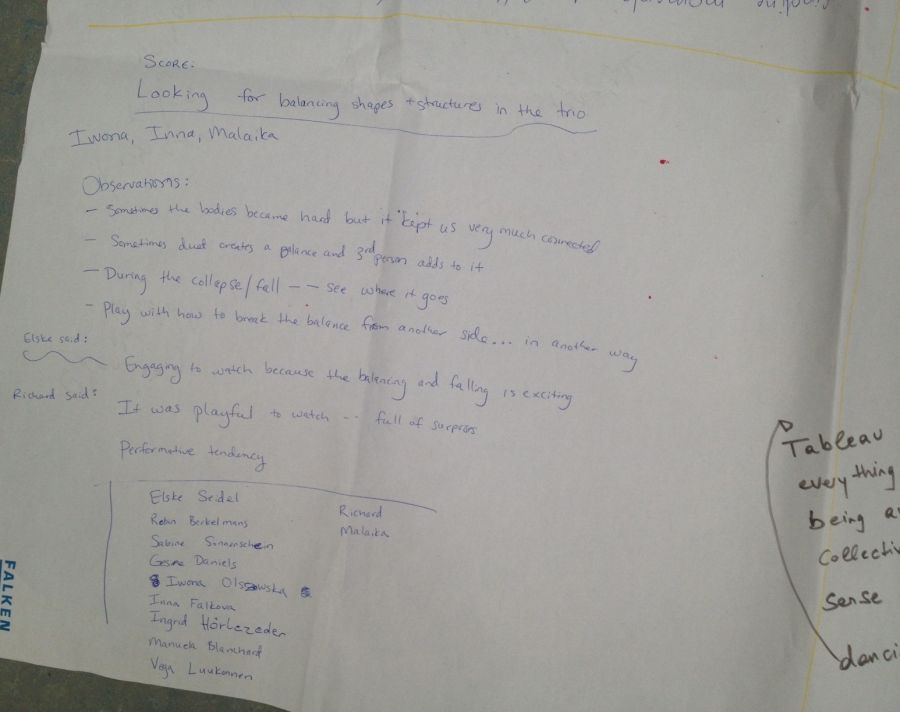 SCORE:
Looking for balancing shapes + structures in the trio
Iwona, Inna, Malaika
Observations:
- Sometimes the bodies became hard but it kept us very much connected
- Sometimes duet creates a balance and 3rd person adds to it
- During the collapse/fall -- see where it goes
- Play with how to break the balance from another side... in another way
Elske said:
Engaging to watch because the balancing and falling is exciting
Richard said:
It was playful to watch -- full of surprises
Performative tendency
Elske Seidel
Robin Berkelmans
Sabine Sonnenschein
Gesine Daniels
Iwona Olszowska
Inna Falkova
Ingrid Hörlezeder
Manuela Blanchard
Vega Luukonnen
Richard
Malaika
FALKEN
Tableau
everything
being
collectiv
sense
danci